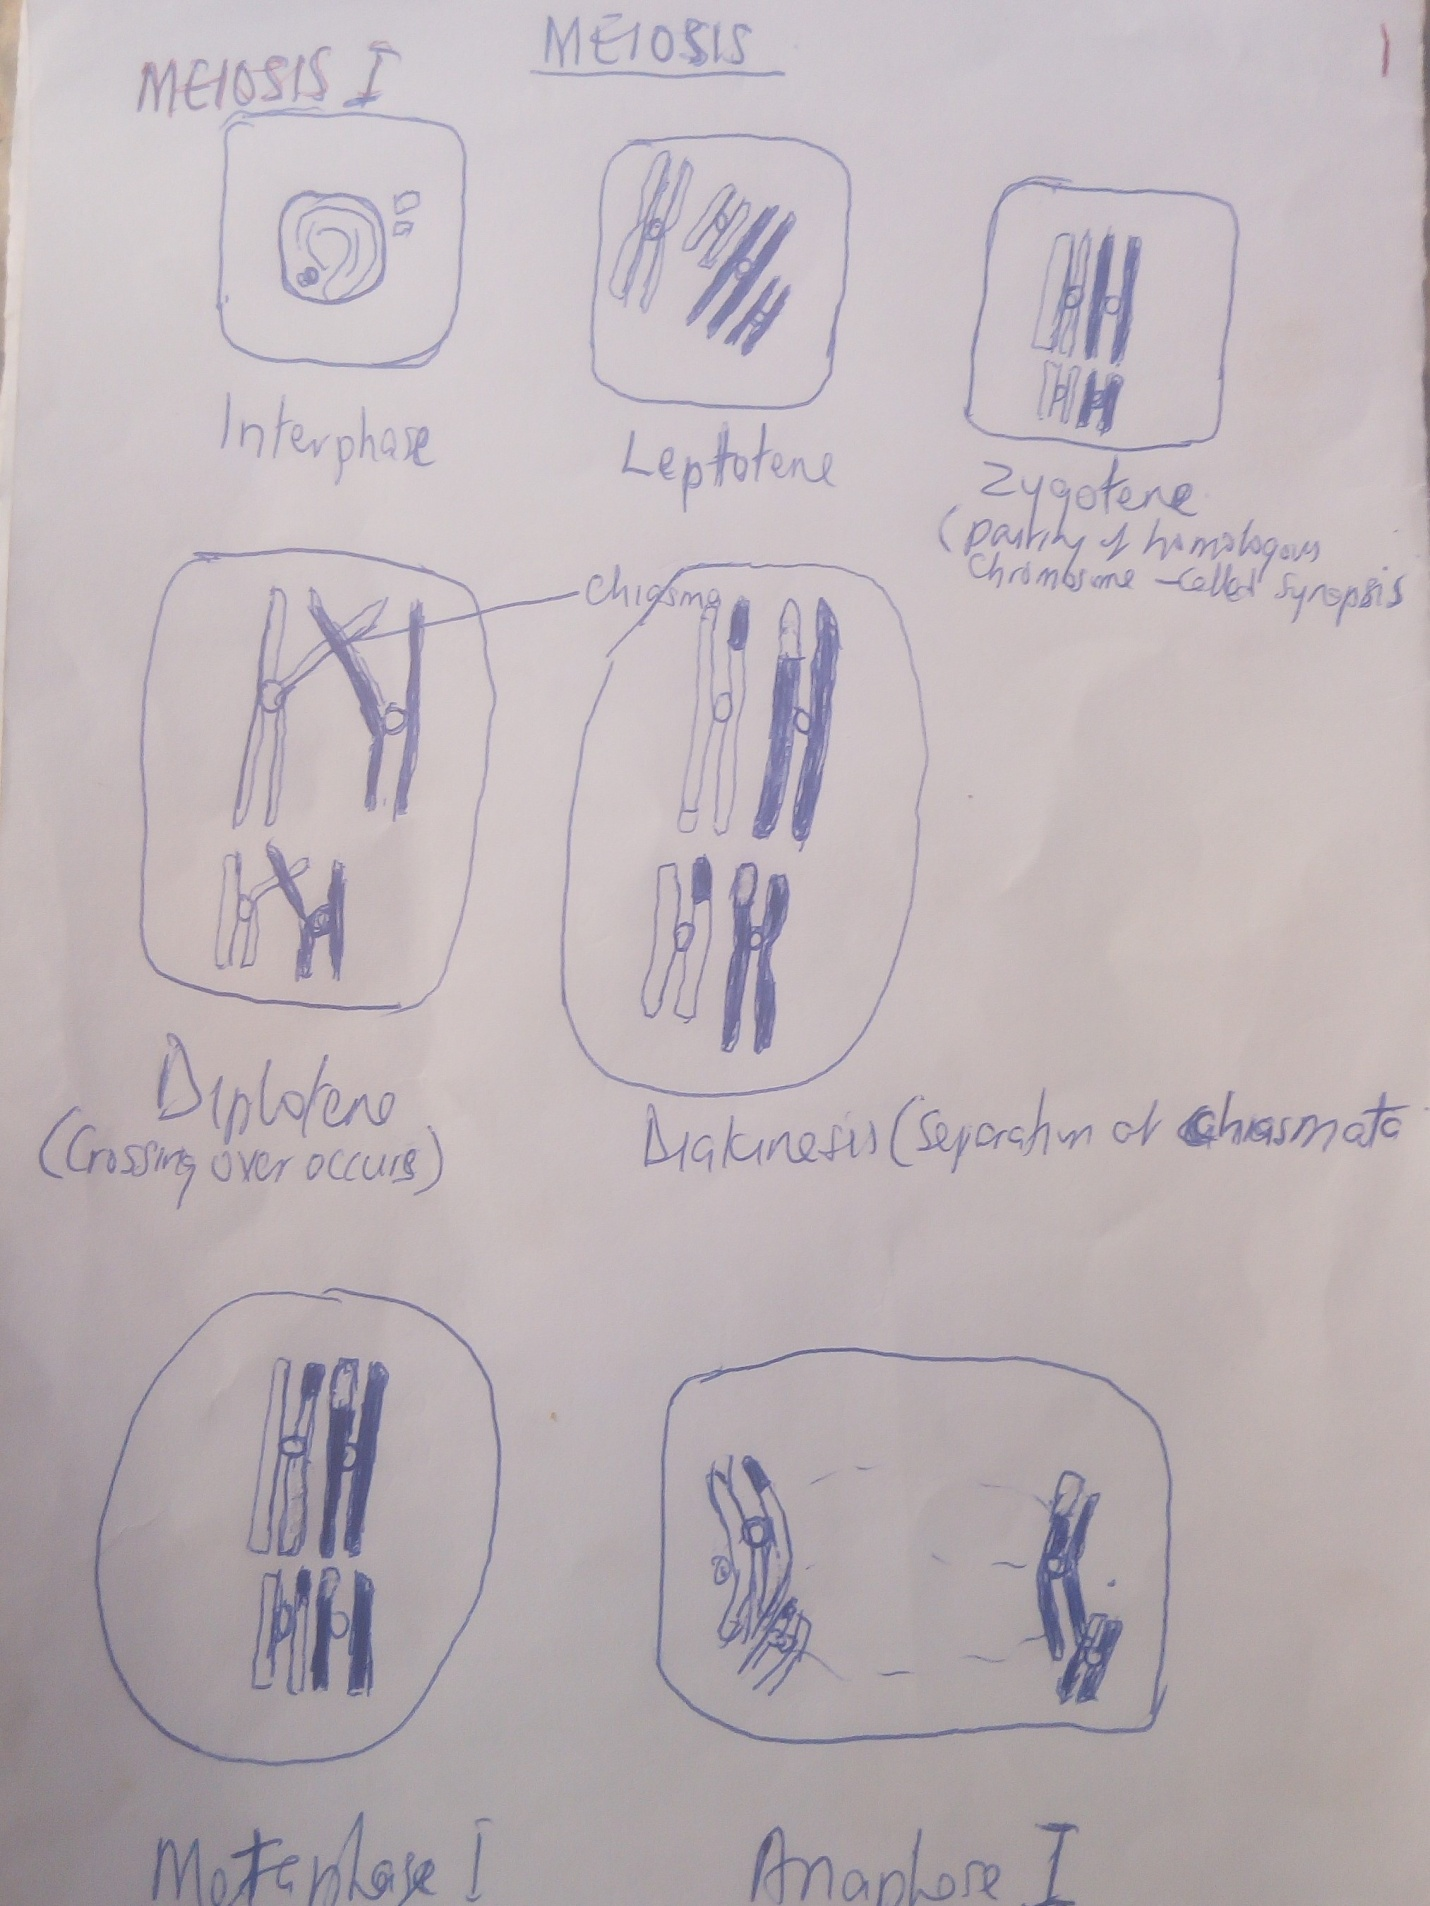 MEIOSIS
1
MEIOSIS I
Interphase
Leptotene
Zygotene
(pairing of homologous
Chromosome - called Synopsis
Chiasma
Diplotene
(Crossing over occurs)
Diakinesis (Separation of Chiasmata
Metaphase I
Anaphase I